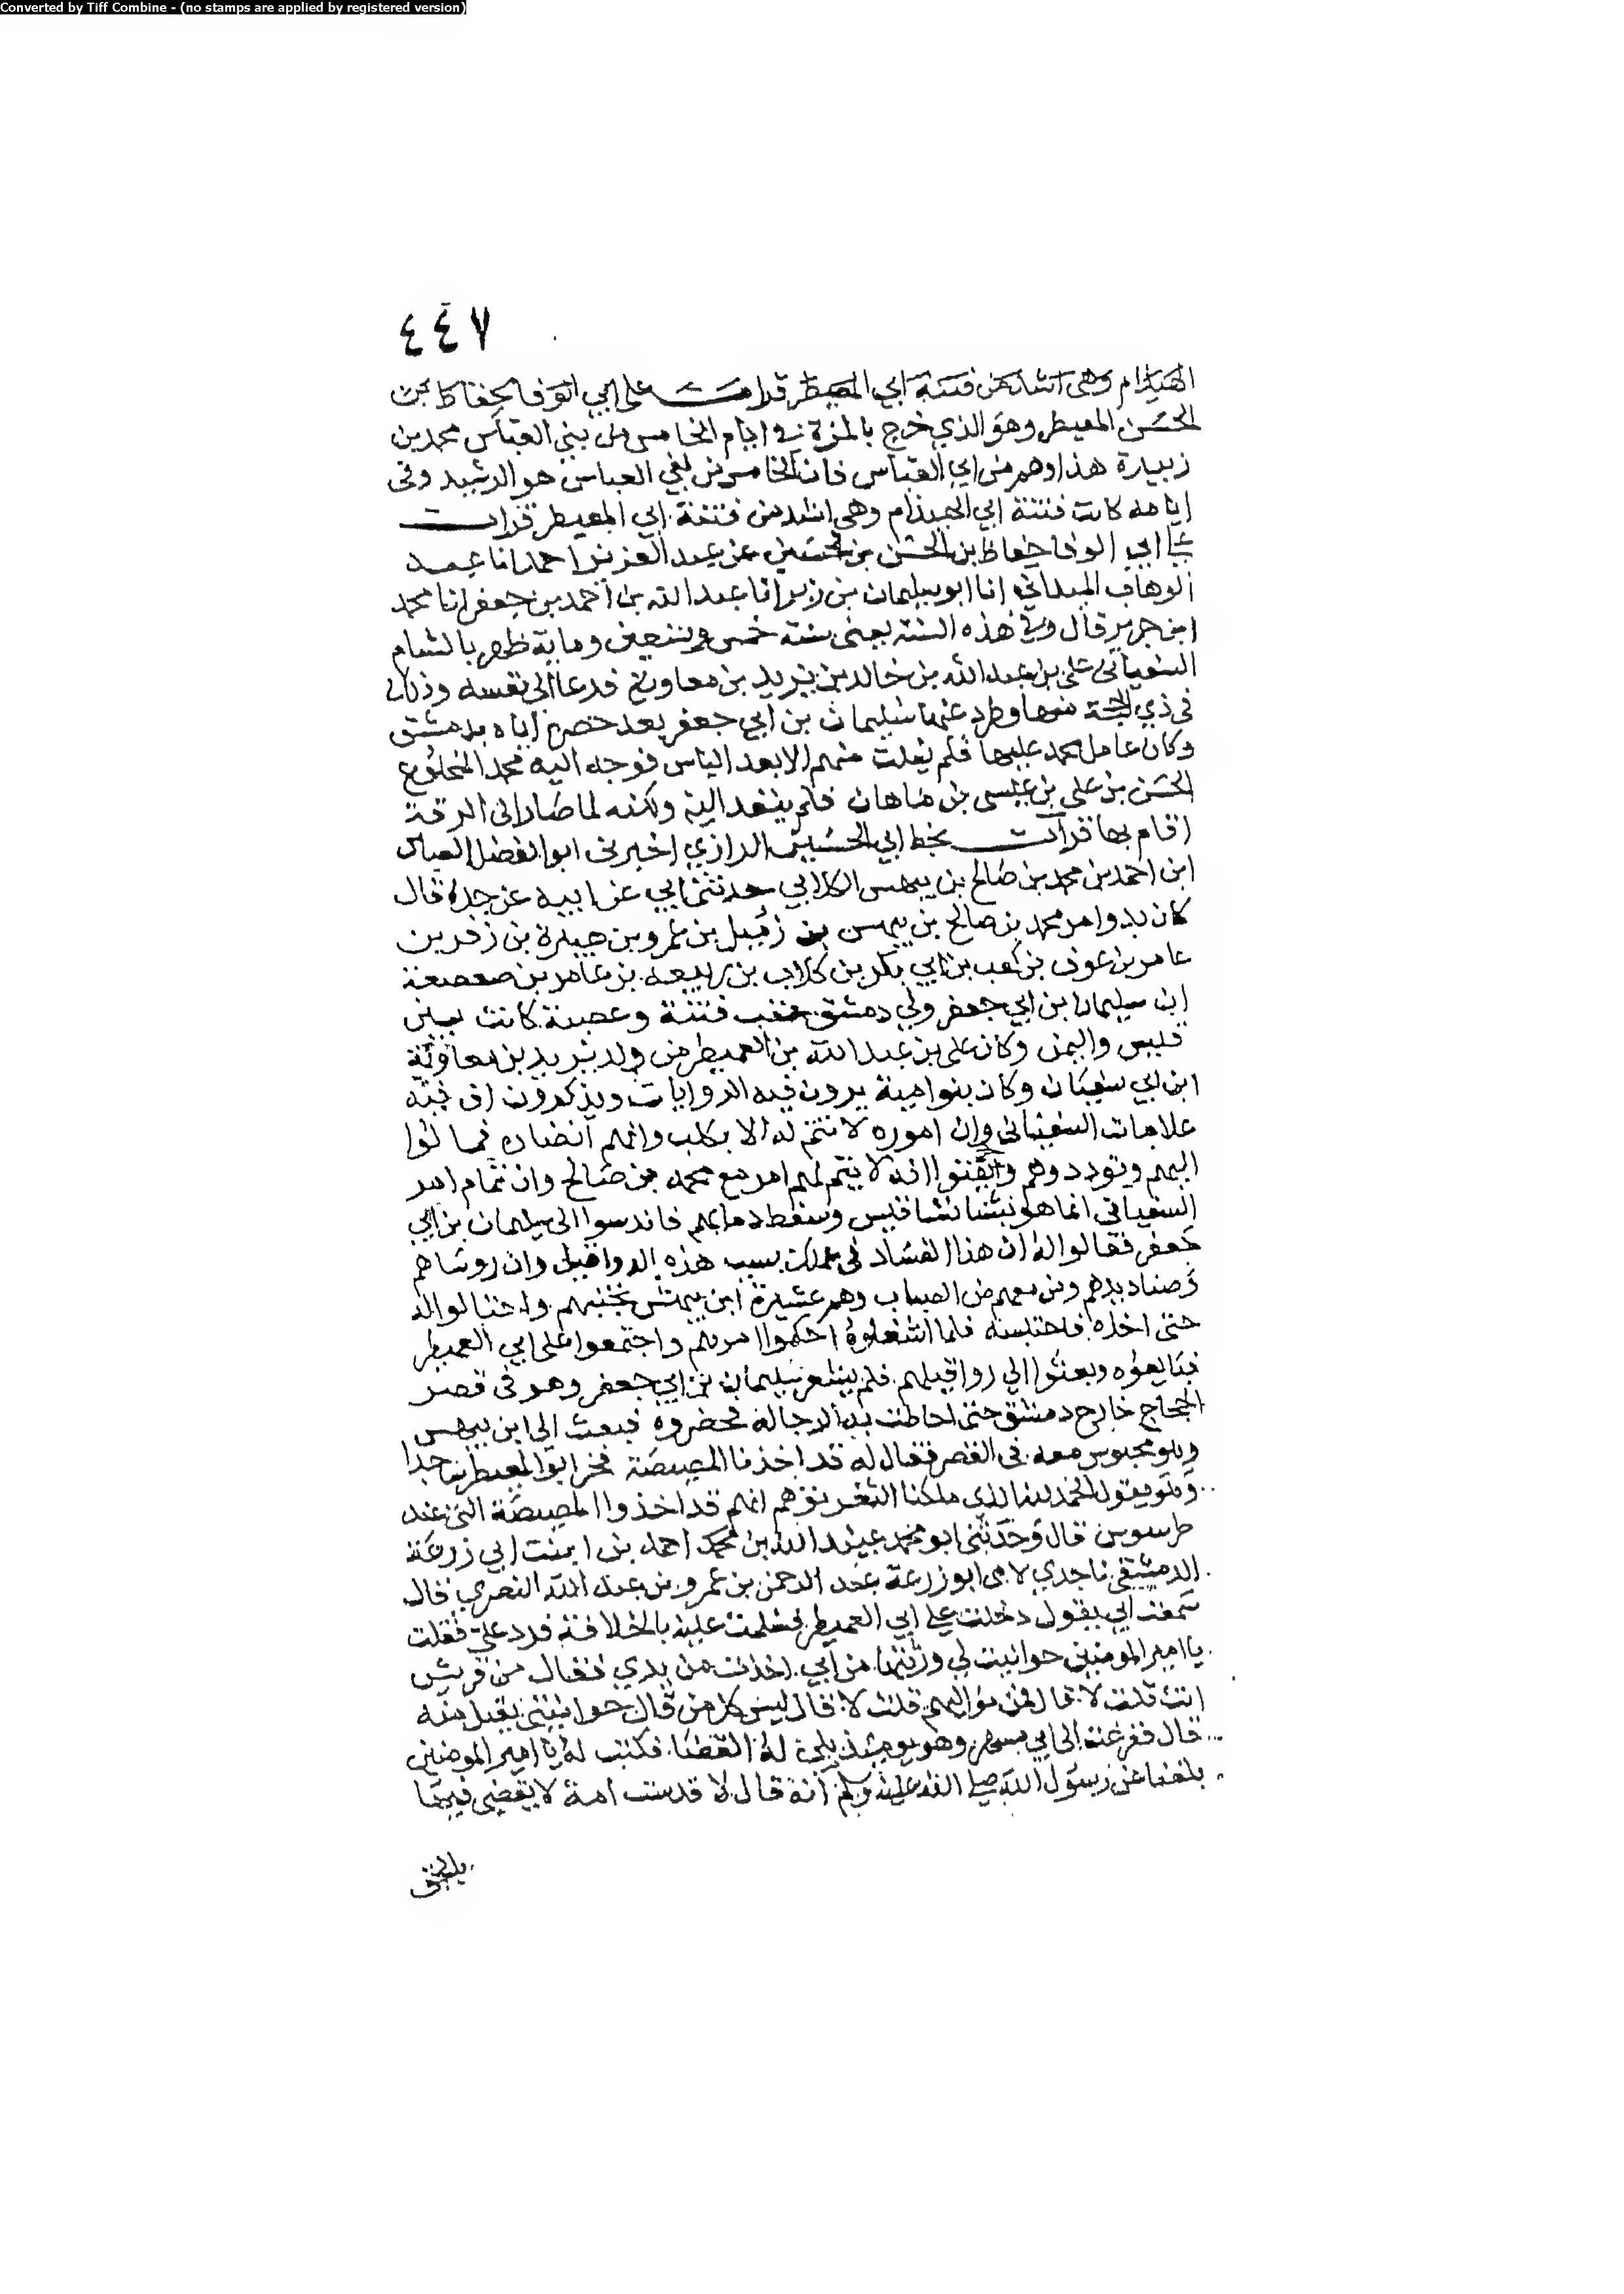 Converted by Tiff Combine - (no stamps are applied by registered version)
٤٤٧
الهيذام وهى اشد من فتنة ابي العميطر قرات على ابي الوفا حفاظ بن
الحسن المعيطر وهو الذي خرج بالمزة في ايام الخامس من بني العباس محمد بن
زبيدة هذا وهم من ابي العباس فان الخامس من بني العباس هو الرشيد وفى
ايامه كانت فتنة ابي الهيذام وهى اشد من فتنة ابي المعيطر قرات
على ابي الوفا حفاظ بن الحسن بن الحسين عن عبد العزيز احمد انا عبد
الوهاب الميداني انا ابو سليمان بن زبر انا عبد الله بن احمد بن جعفر انا محمد
ابن جرير قال وفي هذه السنة يعنى سنة خمس وتسعين وماية ظهر بالشام
السفياني على بن عبد الله بن خالد بن يزيد بن معاوية فدعا الى نفسه وذلك
فى ذي الحجة منها وطرد عنها سليمان بن ابي جعفر بعد حصره اياه بدمشق
وكان عامل محمد عليها فلم يفلت منهم الا بعد الياس فوجه اليه محمد المخلوع
الحسن بن على بن عيسى بن ماهان فلم ينفد اليه ولكنه لما صار الى الرقة
اقام بها قرات بخط ابي الحسين الرازي اخبرنى ابو الفضل العباس
ابن احمد بن محمد بن صالح بن بيهس الكلابي حدثنى ابي عن ابيه عن جده قال
كان بدو امر محمد بن صالح بن بيهس بن زميل بن عمرو بن هبيرة بن زفر بن
عامر بن عوف بن كعب بن ابي بكر بن كلاب بن ربيعة بن عامر بن صعصعة
ان سليمان بن ابي جعفر ولي دمشق عقب فتنة وعصبة كانت بين
قيس واليمن وكان على بن عبد الله بن العميطر من ولد يزيد بن معاوية
ابن ابي سفيان وكان بنوا امية يرون فيه الروايات ويذكرون ان فيه
علامات السفياني وان اموره لا تتم له الا بكلب وانهم انصاره فمالوا
اليهم وتوددوهم وايقنوا انه لا يتم لهم امر مع محمد بن صالح وان تمام امر
السفياني انما هو قيس وسفط دمايهم فاندسوا الى سليمان بن ابي
جعفر فقالوا له ان هذا الفساد فى عملك بسبب هذه الرواقيل وان روساهم
وصناديدهم ومن معهم من الضباب وهم عشيرة ابن بيهس تجنبهم واحتالوا له
حتى اخذه فاحتبسه فلما اشغلوه احكموا امرهم واجتمعوا على ابي العميطر
فبايعوه وبعثوا الي رواقيلهم فلم يشعر سليمان بن ابي جعفر وهو فى قصر
الحجاج خارج دمشق حتى احاطت به الرجالة فحضروه فبعث الى ابن بيهس
وهو محبوس معه فى القصر فقال له قد اخذنا المصيصة فخر ابو المعيطر ساجدا
وهو يقول الحمد لله الذي ملكنا الثغر توهم انهم قد اخذوا المصيصة التى عند
طرسوس قال وحدثنى ابو محمد عبد الله بن محمد احمد بن ابنت ابي زرعة
الدمشقي نا جدي لامى ابو زرعة عبد الرحمن بن عمرو بن عبد الله النصري قال
سمعت ابي يقول دخلت على ابي العميطر فسلمت عليه بالخلافة فرد علي فقلت
يا امير المومنين حوانيت لي ورثتها من ابي اخذت من يدي فقال من قريش
انت قلت لا قال فمن مواليهم قلت لا قال ليس كل من قال حوانيتى يقبل منه
قال ففزعت الى ابي مسهر وهو يومئذ يلى له القضا فكتب له يا امير المومنين
بلغنا عن رسول الله صلى الله عليه وسلم انه قال لا قدست امة لا يقضى فيها
بالحق